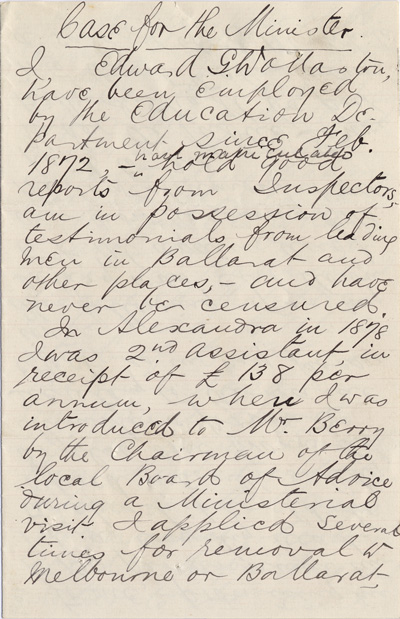 Case for the Minister.
I, Edward G Wollaston,
have been employed
by the Education De-
partment since Feb.
1872, -
" hold good
reports from Inspectors,
am in possession of
testimonials from leading
men in Ballarat and
other places, - and have
never been censured.
In Alexandra in 1878
I was 2nd assistant, in
receipt of £138 per
annum, when I was
introduced to Mr. Berry
by the Chairman of the
local Board of Advice
during a Ministerial
visit. I applied several
times for removal to
Melbourne or Ballarat,